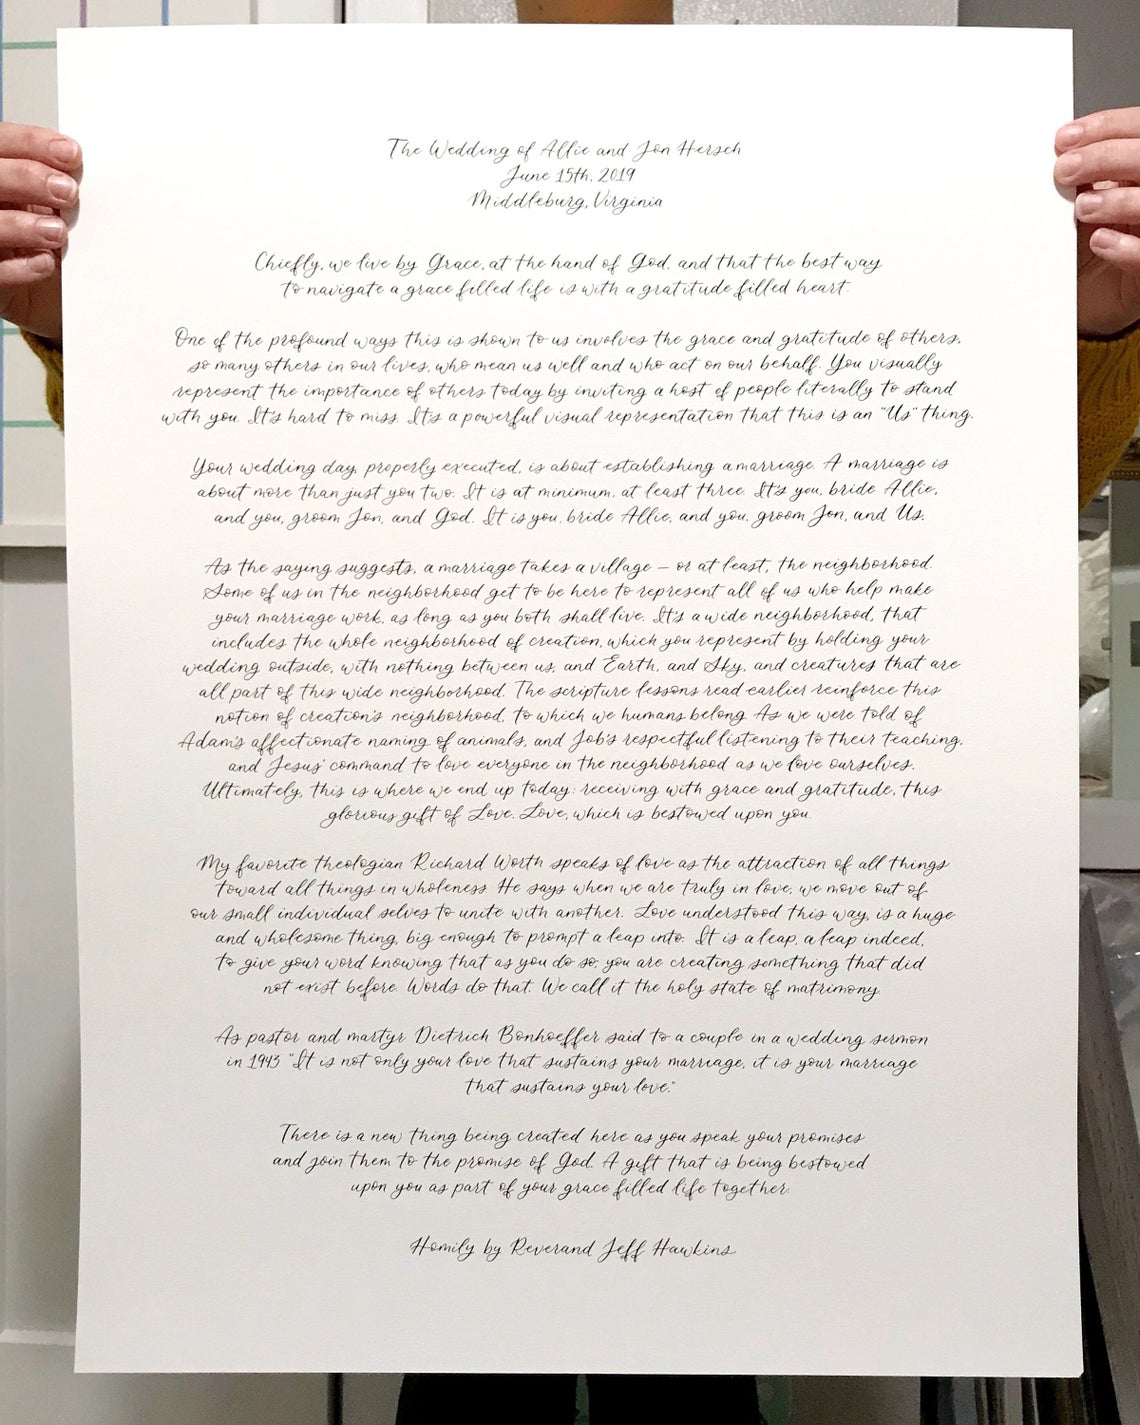 The Wedding of Allie and Jon Hersch
June 15th, 2019
Middleburg, Virginia
Chiefly, we live by Grace, at the hand of God, and that the best way
to navigate a grace filled life is with a gratitude filled heart.
One of the profound ways this is shown to us involves the grace and gratitude of others,
so many others in our lives, who mean us well and who act on our behalf. You visually
represent the importance of others today by inviting a host of people literally to stand
with you. It's hard to miss. It's a powerful visual representation that this is an "Us" thing.
Your wedding day, properly executed, is about establishing a marriage. A marriage is
about more than just you two. It is at minimum, at least three. It's you, bride Allie,
and you, groom Jon, and God. It is you, bride Allie, and you, groom Jon, and Us.
As the saying suggests, a marriage takes a village – or at least, the neighborhood.
Some of us in the neighborhood get to be here to represent all of us who help make
your marriage work, as long as you both shall live. It's a wide neighborhood, that
includes the whole neighborhood of creation, which you represent by holding your
wedding outside, with nothing between us, and Earth, and Sky, and creatures that are
all part of this wide neighborhood. The scripture lessons read earlier reinforce this
notion of creation's neighborhood, to which we humans belong. As we were told of
Adam's affectionate naming of animals, and Job's respectful listening to their teaching,
and Jesus' command to love everyone in the neighborhood as we love ourselves.
Ultimately, this is where we end up today: receiving with grace and gratitude, this
glorious gift of Love. Love, which is bestowed upon you.
My favorite theologian Richard Worth speaks of love as the attraction of all things
toward all things in wholeness. He says when we are truly in love, we move out of
our small individual selves to unite with another. Love understood this way, is a huge
and wholesome thing, big enough to prompt a leap into. It is a leap, a leap indeed,
to give your word knowing that as you do so, you are creating something that did
not exist before. Words do that. We call it the holy state of matrimony.
As pastor and martyr Dietrich Bonhoeffer said to a couple in a wedding sermon
in 1943 "It is not only your love that sustains your marriage, it is your marriage
that sustains your love."
There is a new thing being created here as you speak your promises
and join them to the promise of God. A gift that is being bestowed
upon you as part of your grace filled life together.
Homily by Reverand Jeff Hawkins